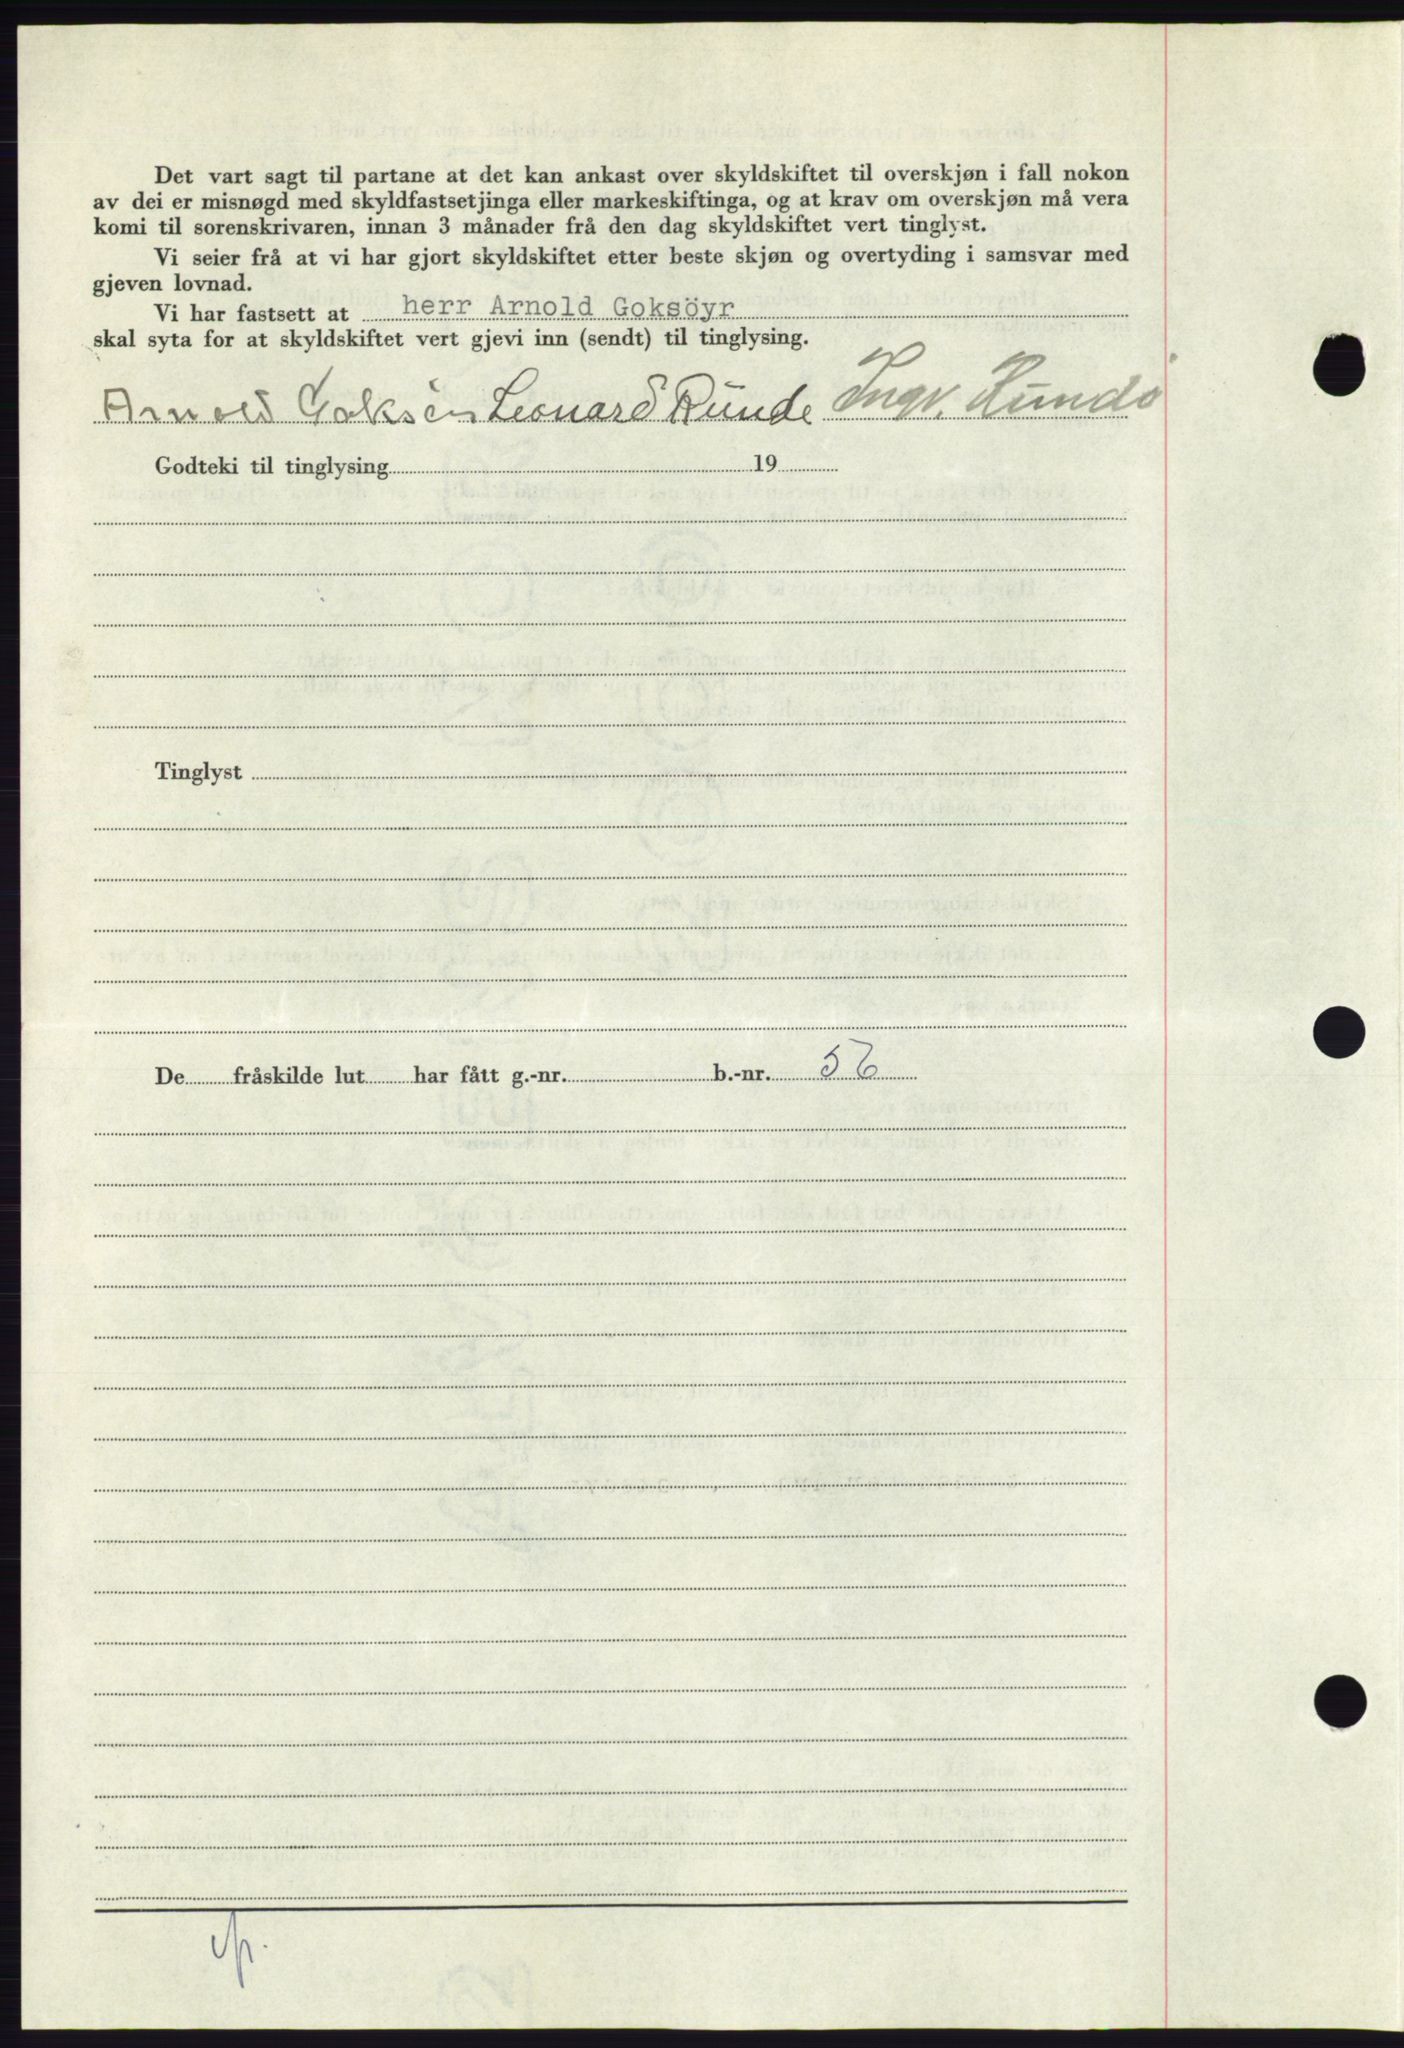 Det vart sagt til partane at det kan ankast over skyldskiftet til overskjøn i fall nokon
av dei er misnøgd med skyldfastsetjinga eller markeskiftinga, og at krav om overskjøn må vera
komi til sorenskrivaren, innan 3 månader frå den dag skyldskiftet vert tinglyst.
Vi seier frå at vi har gjort skyldskiftet etter beste skjøn og overtyding i samsvar med
gjeven lovnad.
Vi har fastsett at herr Arnold Goksöyr
skal syta for at skyldskiftet vert gjevi inn (sendt) til tinglysing.
Arnold Goksöir Leonard Runde Ingv. Runde
Godteki til tinglysing 19
Tinglyst
De fråskilde lut har fått g.-nr. b.-nr. 56